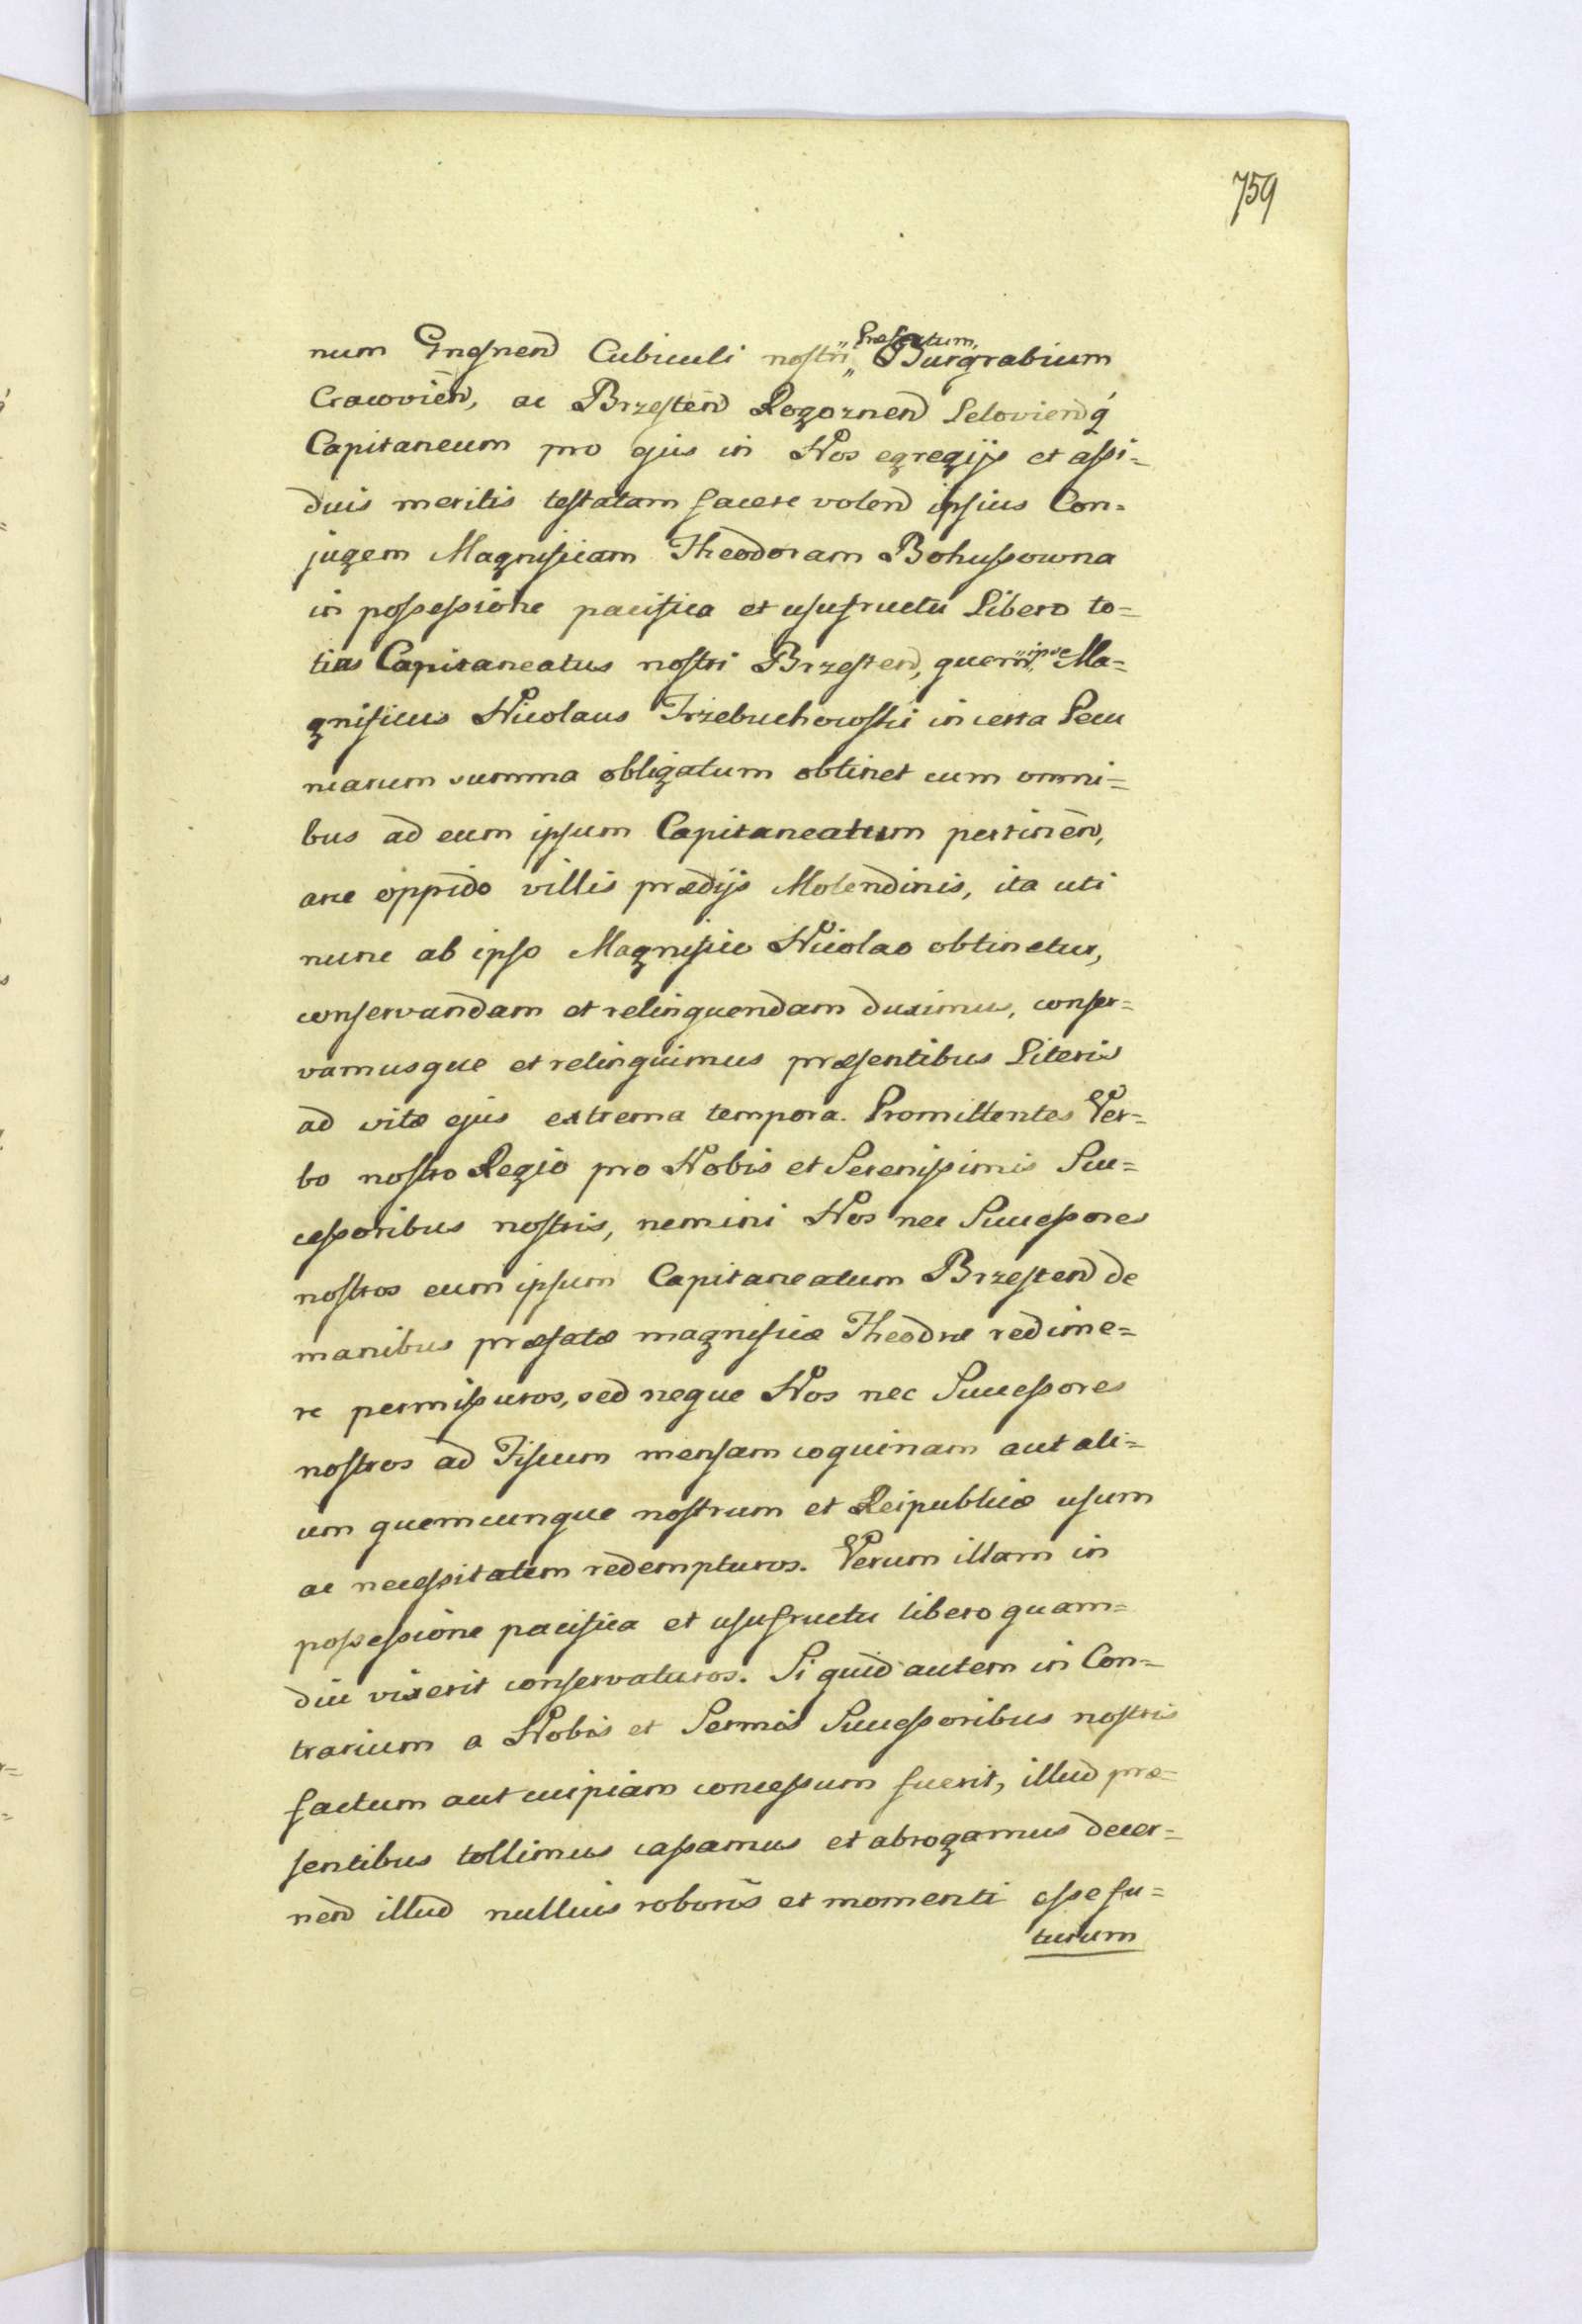 759
num Gnesnen Cubiculi nostri „Præfectum„ Burgrabium
Cracovien̄, ac Brzesten̄ Rogoznen Leloviend q́
Capitaneum pro ejus in Nos egregijs et assi=
duis meritis testatam facere volen ipsius Con=
jugem Magnificam Theodoram Bohussowna
in possessione pacifica et usufructu Libero to=
tius Capitaneatus nostri Brzesten, quem „ipse„ Ma=
gnificus Nicolaus Trzebuchowski in certa Pecu
niarum summa obligatum obtinet cum omni=
bus ad eum ipsum Capitaneatum pertinen̄,
arce oppido villis prædijs Molendinis, ita uti
nunc ab ipso Magnifico Nicolao obtinetur,
conservandam et relinquendam duximus, conser=
vamusque et relinquimus præsentibus Literis
ad vitæ ejus extrema tempora. Promittentes Ver=
bo nostro Regio pro Nobis et Serenissimis Suc=
cessoribus nostris, nemini Nos nec Successores
nostros eum ipsum Capitaneatum Brzesten de
manibus præfatæ magnificæ Theodræ redime=
re permissuros, sed neque Nos nec Successores
nostros ad Fiscum mensam coquinam aut ali=
um quemcunque nostrum et Reipublicæ usum
ac necessitatem redempturos. Verum illam in
possessione pacifica et usufructu libero quam=
diu vixerit conservaturos. Si quid autem in Con=
trarium a Nobis et Sermis Successoribus nostris
factum aut cuipiam concessum fuerit, illud præ=
sentibus tollimus cassamus et abrogamus decer=
nen illud nullius roboris et momenti esse fu=
turum